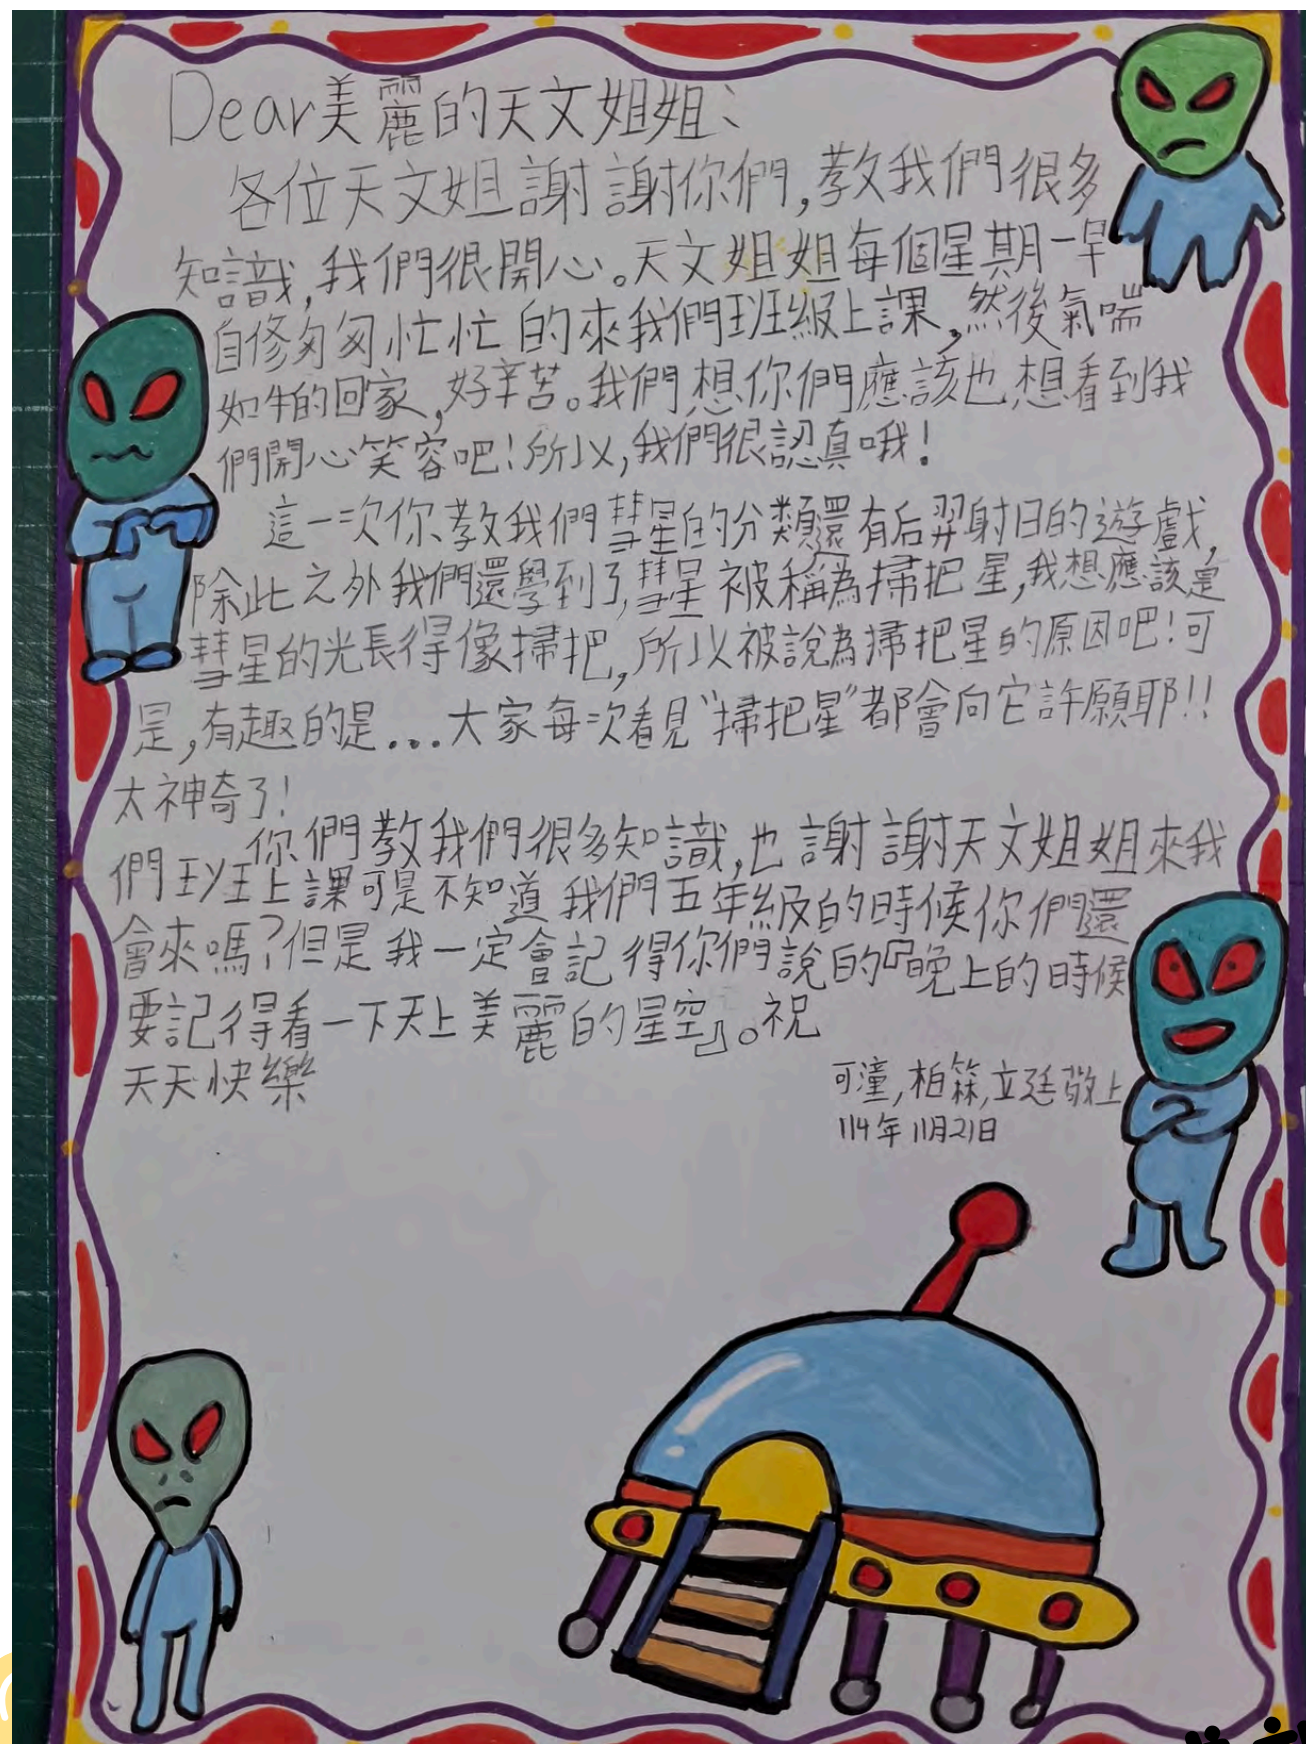 Dear美麗的天文姐姐：
各位天文姐謝謝你們,教我們很多
知識,我們很開心。天文姐姐每個星期一早
自修匆匆忙忙的來我們班級上課,然後氣喘
如牛的回家,好辛苦。我們想你們應該也想看到我
們開心笑容吧!所以,我們很認真哦!
這一次你教我們彗星的分類還有后羿射日的遊戲,
除此之外我們還學到了,彗星被稱為掃把星,我想應該是
彗星的光長得像掃把,所以被說為掃把星的原因吧!可
是,有趣的是...大家每次看見“掃把星”都會向它許願耶!!
太神奇了!
你們教我們很多知識,也謝謝天文姐姐來我
們班上課可是不知道我們五年級的時候你們還
會來嗎?但是我一定會記得你們說的『晚上的時候
要記得看一下天上美麗的星空』。祝
天天快樂
可潼,柏箖,立廷敬上
114年11月21日